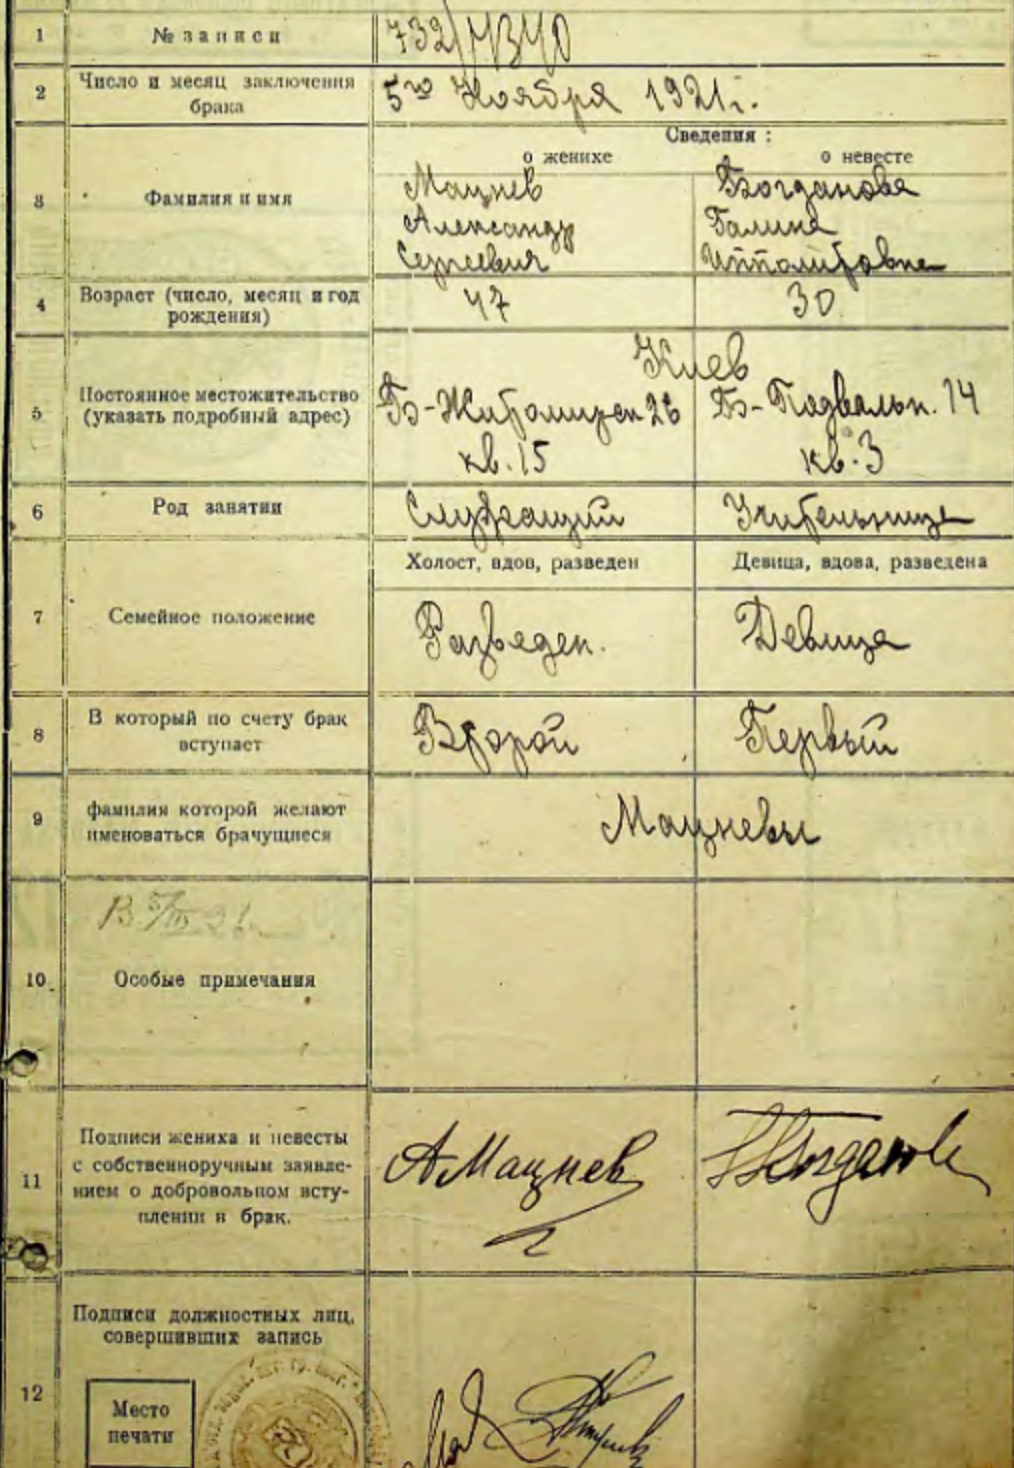 1 № записи 732/4340
2 Число и месяц заключения брака 5го Ноября 1921г.
Сведения :
о женихе о невесте
3 Фамилия и имя
Мацнев Богданова
Александр Галина
Сергеевич Ипполитовна
4 Возраст (число, месяц и год рождения) 47 30
Киев
5 Постоянное местожительство Б-Житомирск 26 Б-Подвальн. 14
(указать подробный адрес) кв. 15 кв. 3
6 Род занятии Служащий Учительница
Холост, вдов, разведен Девица, вдова, разведена
7 Семейное положение Разведен. Девица
8 В который по счету брак вступает Второй Первый
9 фамилия которой желают
именоваться брачущиеся Мацневы
10. Особые примечания
11 Подписи жениха и невесты
с собственноручным заявле-
нием о добровольном всту-
плении в брак.
АМацнев Богданова
Подписи должностных лиц,
совершивших запись
12
Место
печати